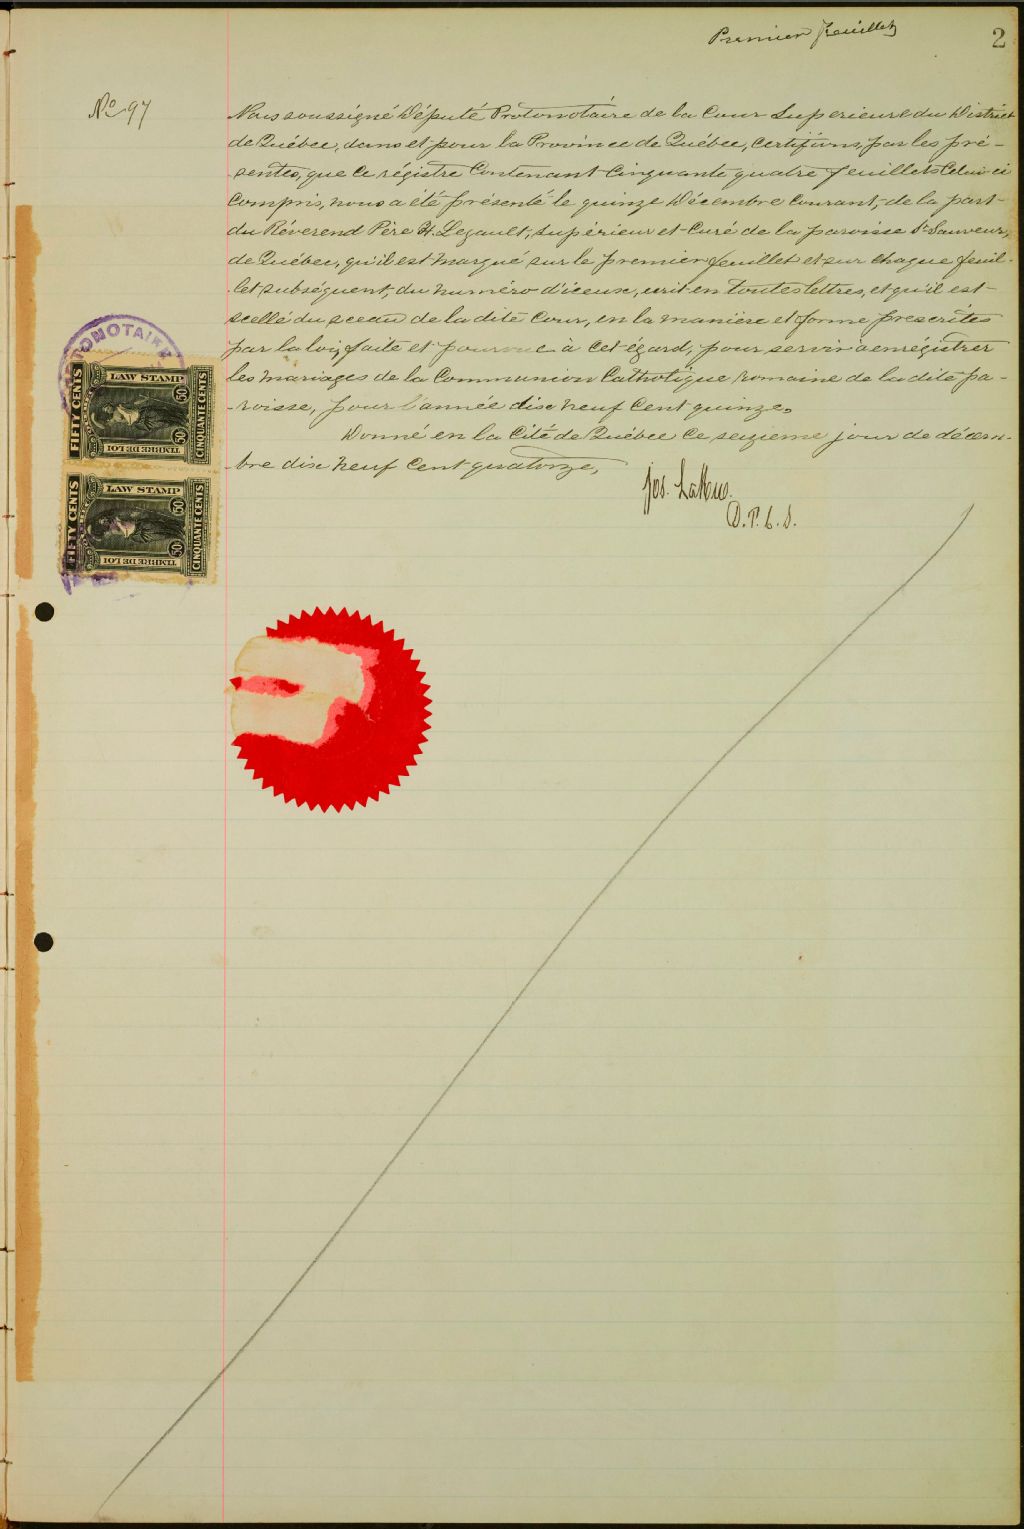 Premier feuillet
2
No 97
Nous soussigné Député Protonotaire de la Cour Superieure du District
de Québec, dans et pour la Province de Québec, Certifions, par les pré-
-sentes, que ce régistre Contenant Cinquante quatre feuillets Celui-ci
Compris, nous a été présenté le quinze Décembre Courant, de la part
du Révérend Père H. Legault, Supérieur et Curé de la paroisse St Sauveur,
de Québec, qu'il est marqué sur le premier feuillet et sur chaque feuil-
-let subséquent, du numéro d'iceux, écrit en toutes lettres, et qu'il est
scellé du sceau de la dite Cour, en la manière et forme prescrites
par la loi, faite et pourvue à Cet égard, pour servir à enrégistrer
les mariages de la Communion Catholique romaine de la dite pa-
-roisse, pour l'année dix neuf Cent quinze.
Donné en la Cité de Québec Ce seizieme jour de décem-
bre dix neuf Cent quatorze,
Jos. LaRue
D. P. C. S.
TONOTAIRE
LAW STAMP
FIFTY CENTS
50
50
CINQUANTE CENTS
TIMBRE DE LOI
LAW STAMP
FIFTY CENTS
50
50
CINQUANTE CENTS
TIMBRE DE LOI